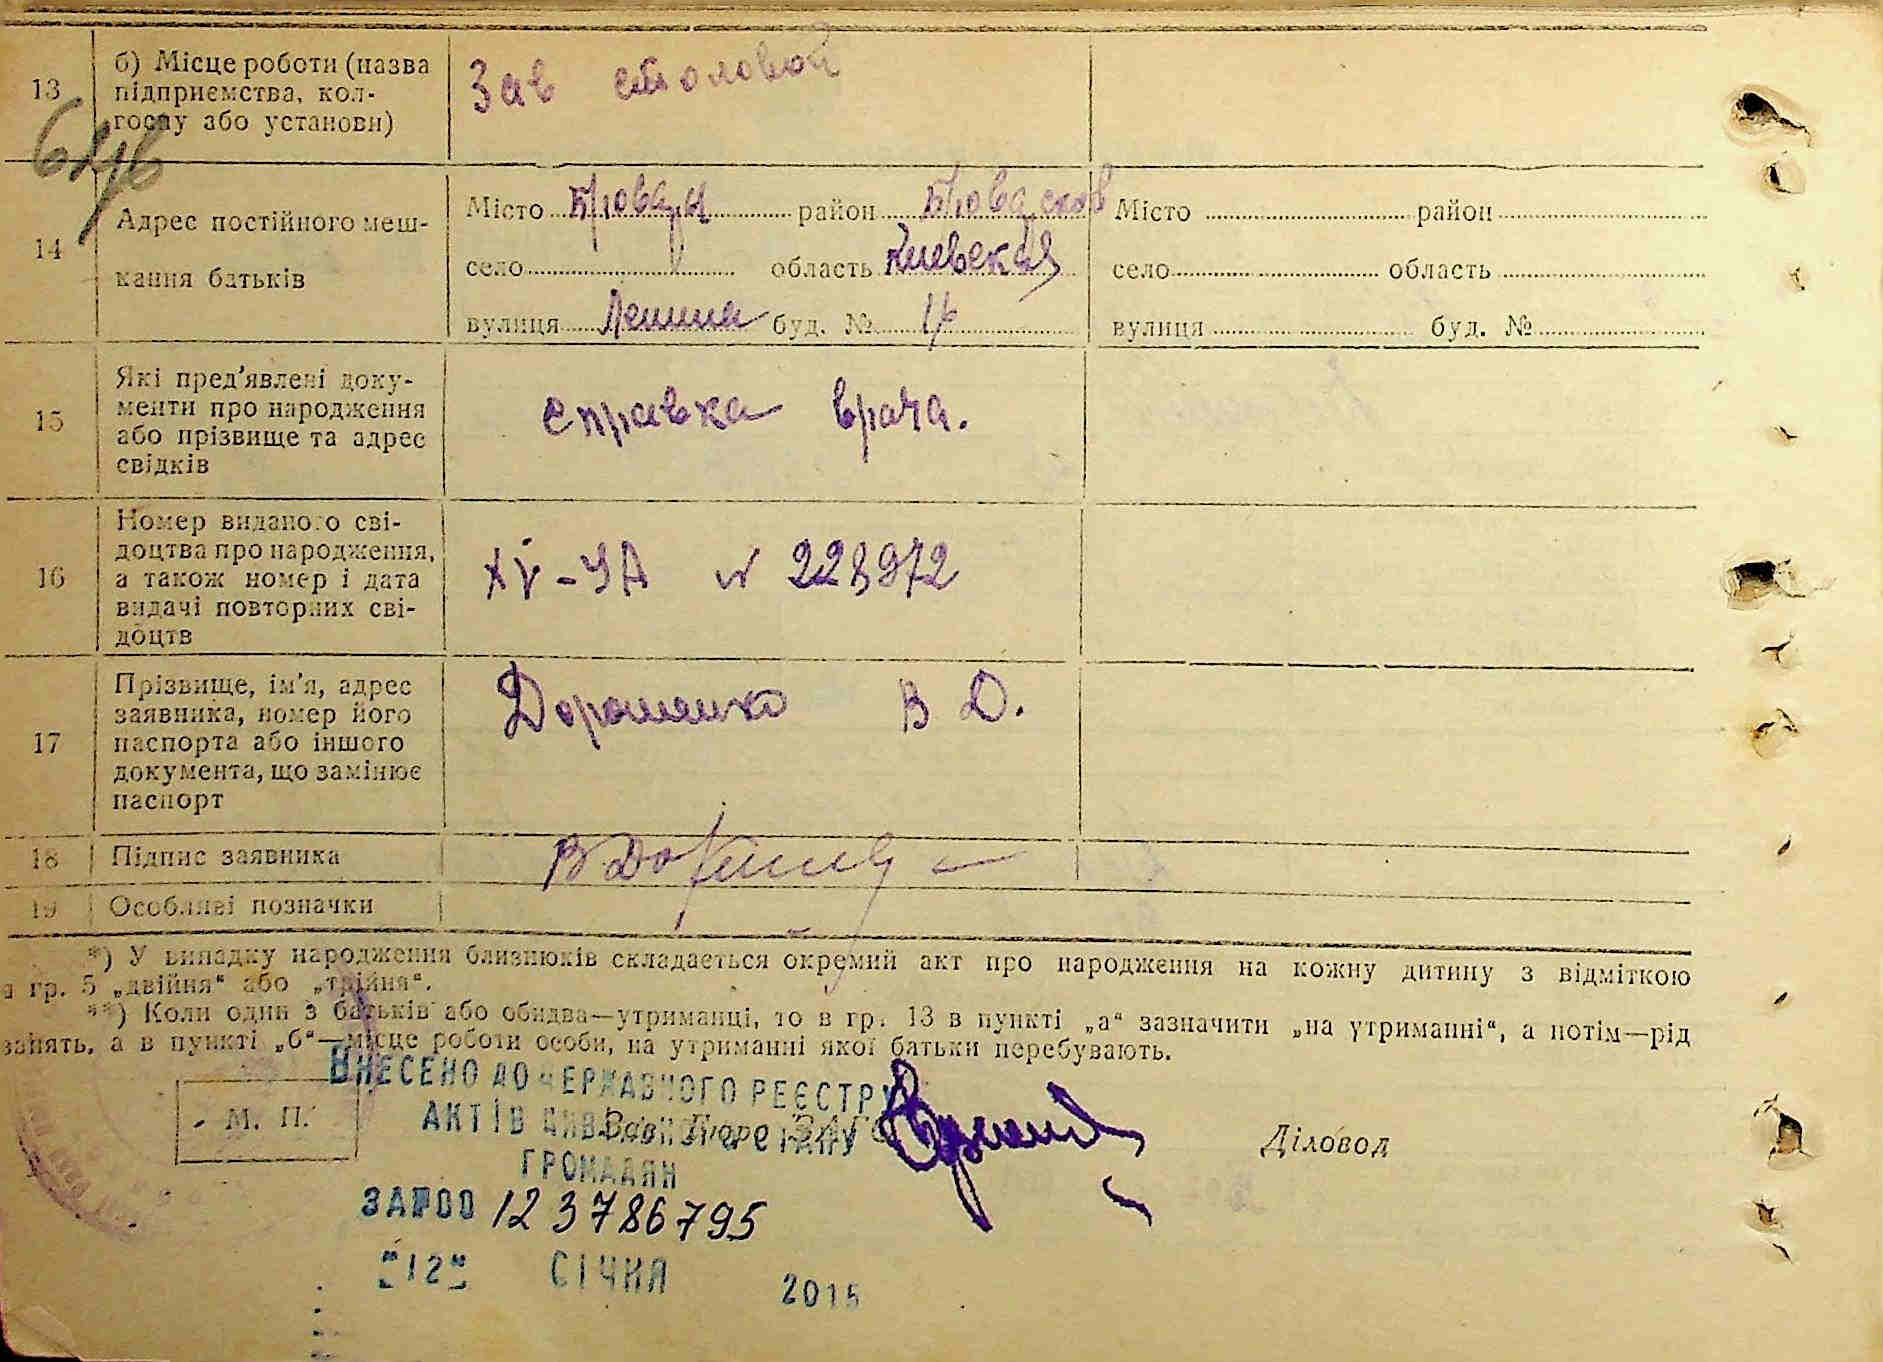 13 б) Місце роботи (назва підприємства, колгоспу або установи) Зав столовой
14 Адрес постійного мешкання батьків
Місто Бровары район Бровар село область Киевская
вулиця Ленина буд. №
Місто район
село область
вулиця буд. №
15 Які пред'явлені документи про народження або прізвище та адрес свідків
справка врача.
16 Номер виданого свідоцтва про народження, а також номер і дата видачі повторних свідоцтв
XV-УА № 228972
17 Прізвище, ім'я, адрес заявника, номер його паспорта або іншого документа, що замінює паспорт
Дорошенко В Д.
18 Підпис заявника
19 Особливі позначки
*) У випадку народження близнюків складається окремий акт про народження на кожну дитину з відміткою
в гр. 5 „двійня“ або „трійня“.
**) Коли один з батьків або обидва—утриманці, то в гр. 13 в пункті „а“ зазначити „на утриманні“, а потім—рід
занять, а в пункті „б“—місце роботи особи, на утриманні якої батьки перебувають.
ВНЕСЕНО ДО ДЕРЖАВНОГО РЕЄСТРУ
М. П.
АКТІВ ЦИВІЛЬНОГО СТАНУ
Зав. Бюро ЗАГС
Діловод
ГРОМАДЯН
ЗА №00 123786795
"12" СІЧНЯ 2015